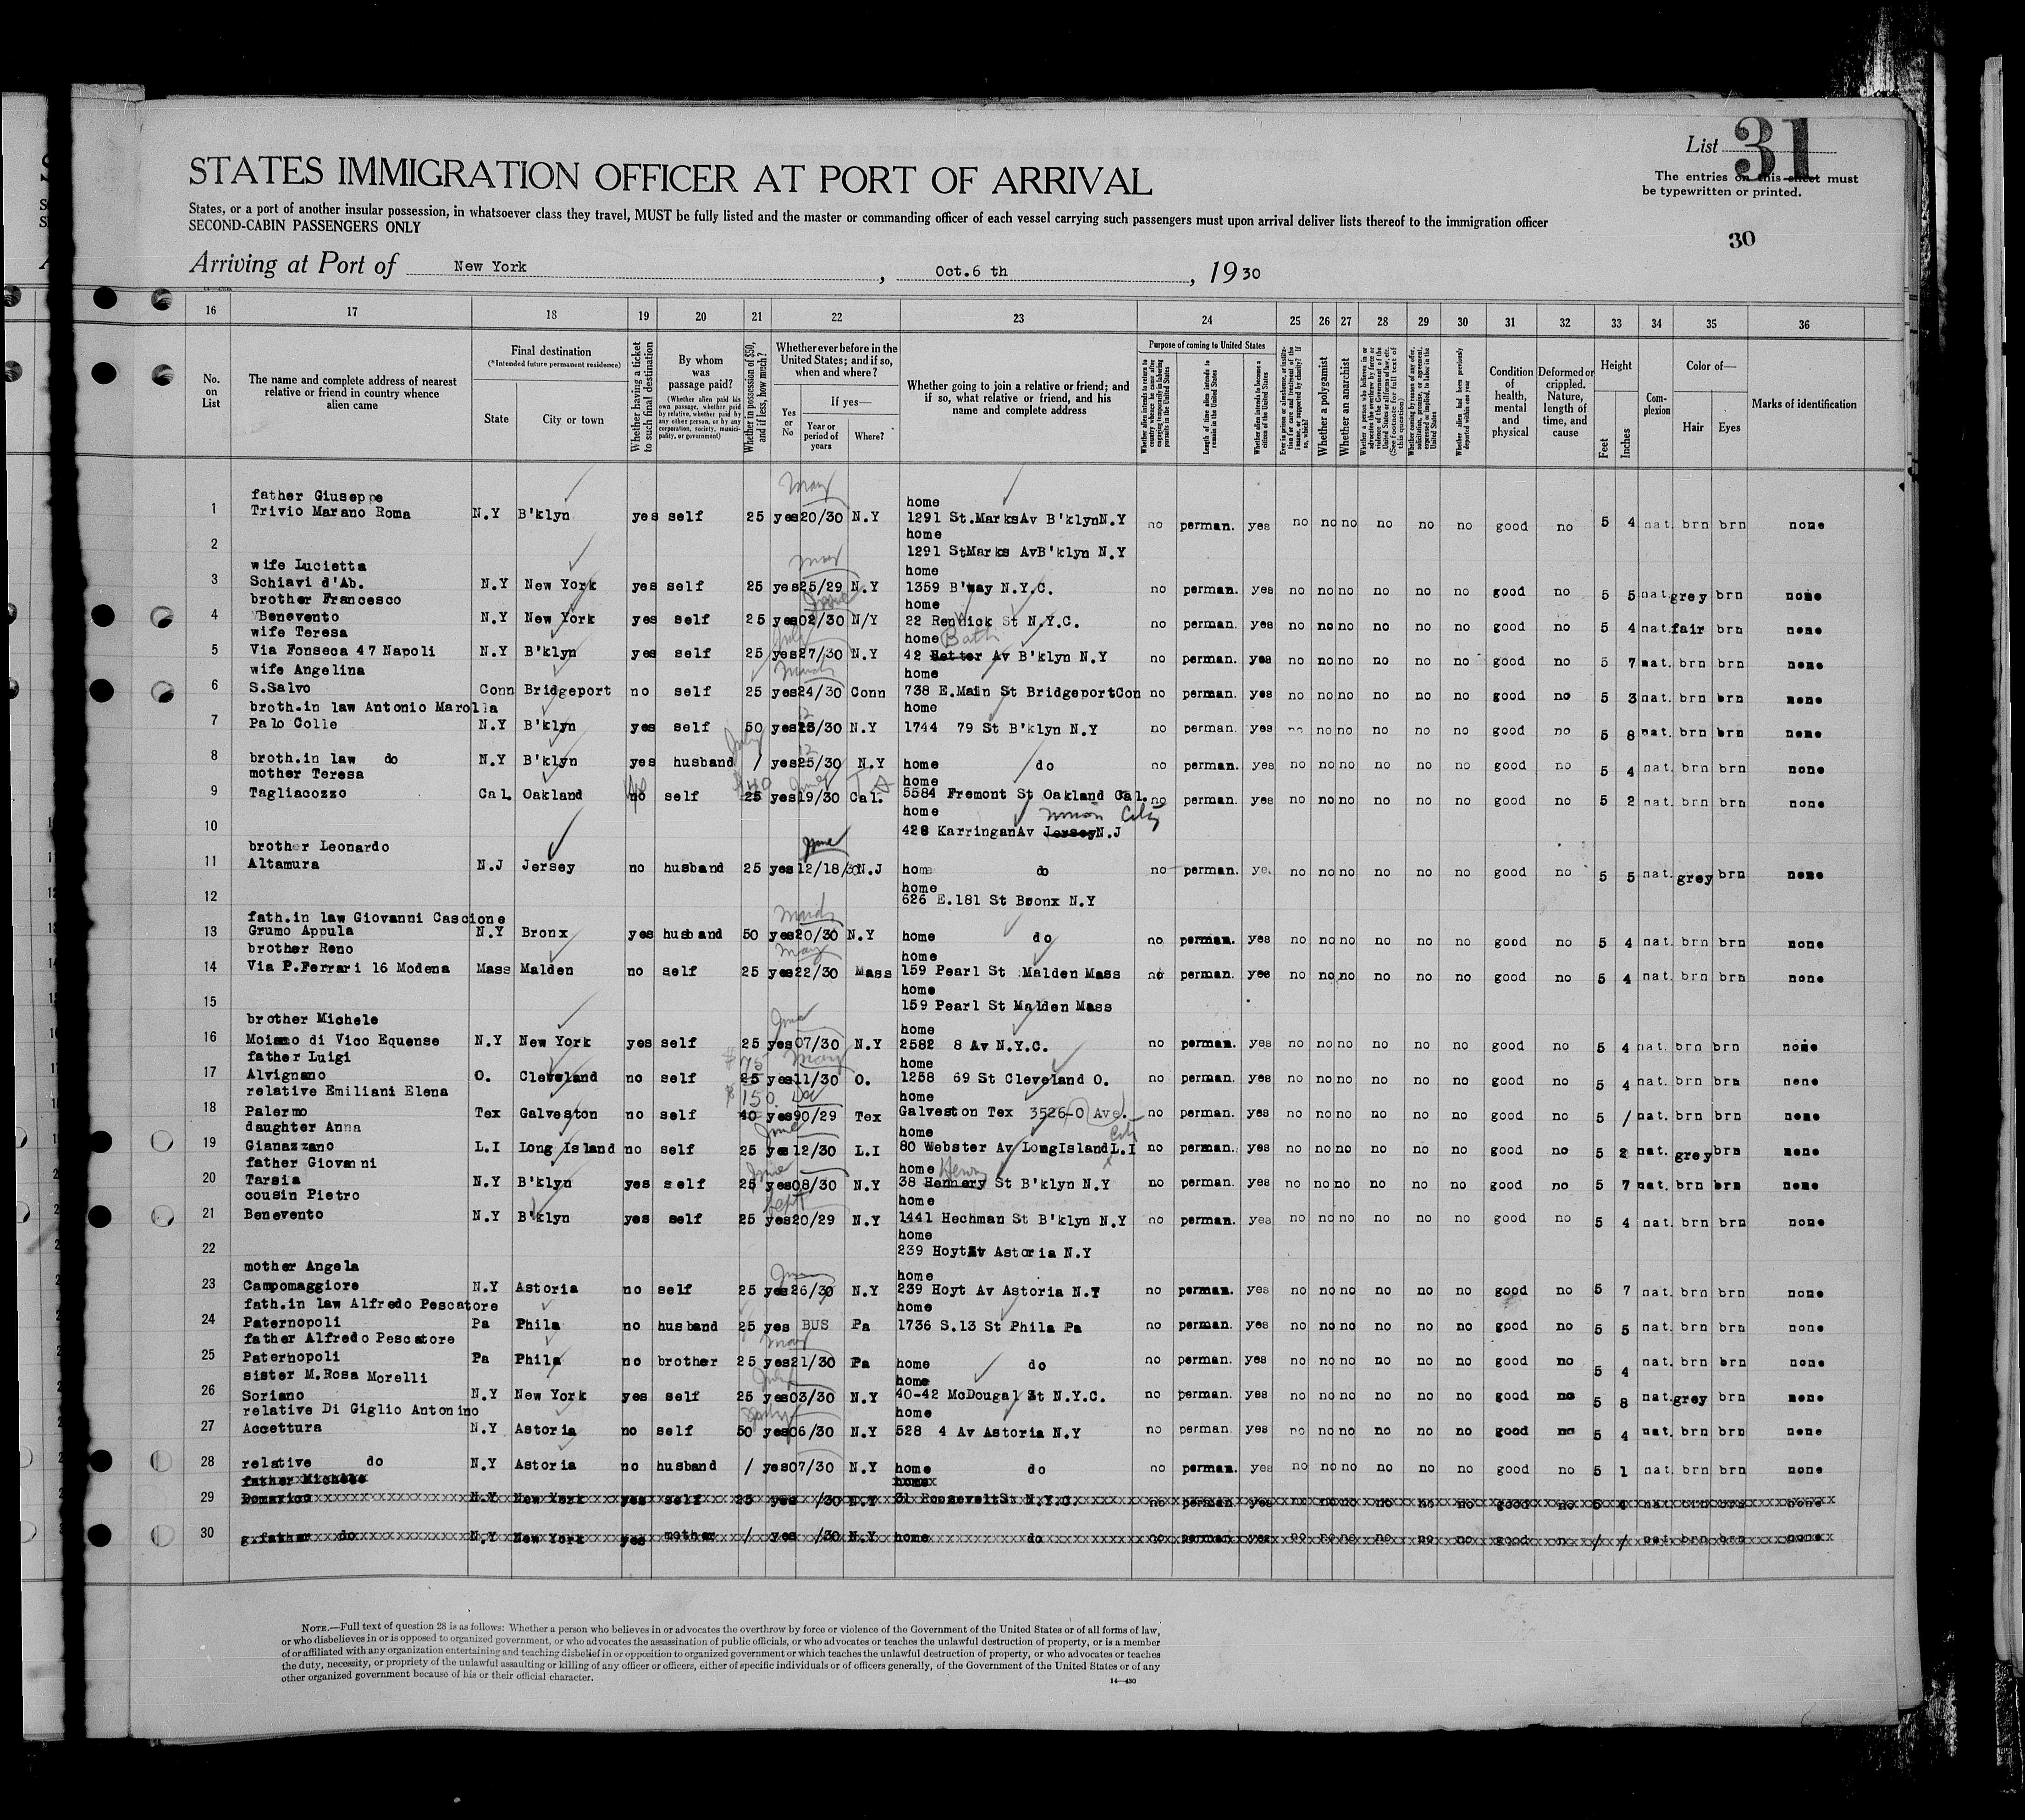 List 31
The entries on this sheet must
be typewritten or printed.
STATES IMMIGRATION OFFICER AT PORT OF ARRIVAL
States, or a port of another insular possession, in whatsoever class they travel, MUST be fully listed and the master or commanding officer of each vessel carrying such passengers must upon arrival deliver lists thereof to the immigration officer
SECOND-CABIN PASSENGERS ONLY
30
Arriving at Port of New York, Oct.6 th, 1930
16 17 18 19 20 21 22 23 24 25 26 27 28 29 30 31 32 33 34 35 36
No. on List
The name and complete address of nearest relative or friend in country whence alien came
Final destination
(*Intended future permanent residence)
State
City or town
Whether having a ticket to such final destination
By whom was passage paid?
(Whether alien paid his own passage, whether paid by relative, whether paid by any other person, or by any corporation, society, municipality, or government)
Whether in possession of $50, and if less, how much?
Whether ever before in the United States; and if so, when and where?
Yes or No
If yes—
Year or period of years
Where?
Whether going to join a relative or friend; and if so, what relative or friend, and his name and complete address
Purpose of coming to United States
Whether alien intends to return to country whence he came after engaging temporarily in laboring pursuits in the United States
Length of time alien intends to remain in the United States
Whether alien intends to become a citizen of the United States
Whether a polygamist
Whether an anarchist
Condition of health, mental and physical
Deformed or crippled. Nature, length of time, and cause
Height
Feet
Inches
Complexion
Color of—
Hair
Eyes
Marks of identification
May
father Giuseppe home
1 Trivio Marano Roma N.Y B'klyn yes self 25 yes 20/30 N.Y 1291 St.MarksAv B'klynN.Y no perman. yes no no no no no no good no 5 4 nat. brn brn none
home
2 1291 StMarks AvB'klyn N.Y
wife Lucietta home
3 Schiavi d'Ab. N.Y New York yes self 25 yes 25/29 N.Y 1359 B'way N.Y.C. no perman. yes no no no no no no good no 5 5 nat. grey brn none
brother Francesco June home
4 Benevento N.Y New York yes self 25 yes 02/30 N/Y 22 Renwick St N.Y.C. no perman. yes no no no no no no good no 5 4 nat. fair brn none
wife Teresa July home Bath
5 Via Fonseca 47 Napoli N.Y B'klyn yes self 25 yes 27/30 N.Y 42 Better Av B'klyn N.Y no perman. yes no no no no no no good no 5 7 nat. brn brn none
wife Angelina March home
6 S.Salvo Conn Bridgeport no self 25 yes 24/30 Conn 738 E.Main St BridgeportCon no perman. yes no no no no no no good no 5 3 nat. brn brn none
broth.in law Antonio Marolla home
7 Palo Colle N.Y B'klyn yes self 50 yes 25/30 N.Y 1744 79 St B'klyn N.Y no perman. yes no no no no no no good no 5 8 nat. brn brn none
8 broth.in law do N.Y B'klyn yes husband / yes 25/30 N.Y home do no perman. yes no no no no no no good no 5 4 nat. brn brn none
mother Teresa home
9 Tagliacozzo Cal. Oakland no self 25 yes 19/30 Cal. 5584 Fremont St Oakland Cal. no perman. yes no no no no no no good no 5 2 nat. brn brn none
home Union City
10 428 KarringanAv Jersey N.J
brother Leonardo June
11 Altamura N.J Jersey no husband 25 yes 12/18/30 N.J home do no perman. yes no no no no no no good no 5 5 nat. grey brn none
home
12 626 E.181 St Bronx N.Y
fath.in law Giovanni Cascione March
13 Grumo Appula N.Y Bronx yes husband 50 yes 20/30 N.Y home do no perman. yes no no no no no no good no 5 4 nat. brn brn none
brother Reno May home
14 Via P.Ferrari 16 Modena Mass Malden no self 25 yes 22/30 Mass 159 Pearl St Malden Mass no perman. yes no no no no no no good no 5 4 nat. brn brn none
home
15 159 Pearl St Malden Mass
brother Michele June home
16 Moiano di Vico Equense N.Y New York yes self 25 yes 07/30 N.Y 2582 8 Av N.Y.C. no perman. yes no no no no no no good no 5 4 nat. brn brn none
father Luigi $75 May home
17 Alvignano O. Cleveland no self 25 yes 11/30 O. 1258 69 St Cleveland O. no perman. yes no no no no no no good no 5 4 nat. brn brn none
relative Emiliani Elena $150 home
18 Palermo Tex Galveston no self 40 yes 90/29 Tex Galveston Tex 3526-O Ave. no perman. yes no no no no no no good no 5 / nat. brn brn none
daughter Anna June home City
19 Gianazzano L.I Long Island no self 25 yes 12/30 L.I 80 Webster Av LongIsland L.I no perman. yes no no no no no no good no 5 2 nat. grey brn none
father Giovanni June home Henry
20 Tarsia N.Y B'klyn yes self 25 yes 08/30 N.Y 38 Hennery St B'klyn N.Y no perman. yes no no no no no no good no 5 7 nat. brn brn none
cousin Pietro Sept home
21 Benevento N.Y B'klyn yes self 25 yes 20/29 N.Y 1441 Hechman St B'klyn N.Y no perman. yes no no no no no no good no 5 4 nat. brn brn none
home
22 239 HoytAv Astoria N.Y
mother Angela home
23 Campomaggiore N.Y Astoria no self 25 yes 26/30 N.Y 239 Hoyt Av Astoria N.Y no perman. yes no no no no no no good no 5 7 nat. brn brn none
fath.in law Alfredo Pescatore home
24 Paternopoli Pa Phila no husband 25 yes BUS Pa 1736 S.13 St Phila Pa no perman. yes no no no no no no good no 5 5 nat. brn brn none
father Alfredo Pescatore May
25 Paternopoli Pa Phila no brother 25 yes 21/30 Pa home do no perman. yes no no no no no no good no 5 4 nat. brn brn none
sister M.Rosa Morelli July home
26 Soriano N.Y New York yes self 25 yes 03/30 N.Y 40-42 McDougal St N.Y.C. no perman. yes no no no no no no good no 5 8 nat. grey brn none
relative Di Giglio Antonino home
27 Accettura N.Y Astoria no self 50 yes 06/30 N.Y 528 4 Av Astoria N.Y no perman. yes no no no no no no good no 5 4 nat. brn brn none
28 relative do N.Y Astoria no husband / yes 07/30 N.Y home do no perman. yes no no no no no no good no 5 1 nat. brn brn none
father Michele home
29 Domarico N.Y New York yes self 25 yes /30 N.Y 31 RooseveltSt N.Y.C. no perman yes no no no no no no good no 5 4 nat. brn brn none
30 g.father do N.Y New York yes mother / yes /30 N.Y home do no perman yes no no no no no no good no / / nat. brn brn none
NOTE.—Full text of question 28 is as follows: Whether a person who believes in or advocates the overthrow by force or violence of the Government of the United States or of all forms of law,
or who disbelieves in or is opposed to organized government, or who advocates the assassination of public officials, or who advocates or teaches the unlawful destruction of property, or is a member
of or affiliated with any organization entertaining and teaching disbelief in or opposition to organized government or which teaches the unlawful destruction of property, or who advocates or teaches
the duty, necessity, or propriety of the unlawful assaulting or killing of any officer or officers, either of specific individuals or of officers generally, of the Government of the United States or of any
other organized government because of his or their official character.
14—430